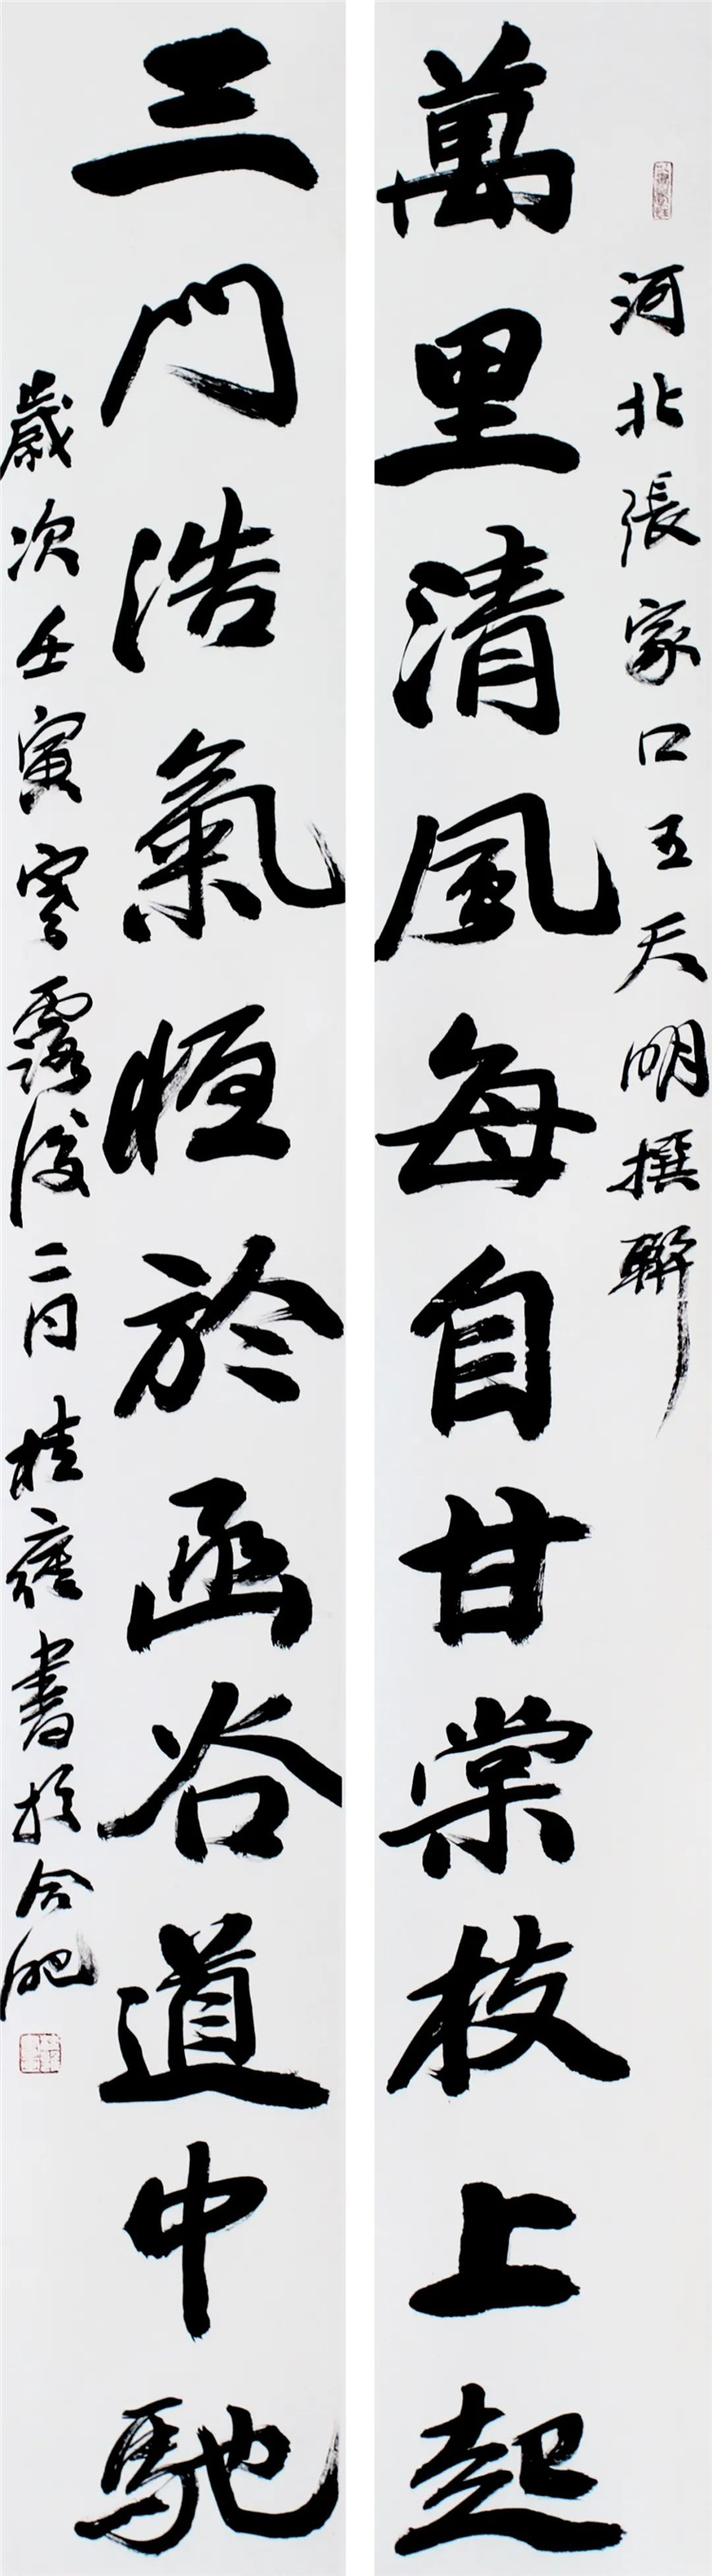 河北張家口王天明撰聯
萬里清風每自甘棠枝上起
三門浩氣恒於函谷道中馳
歲次壬寅寒露後二日桂雍書於合肥